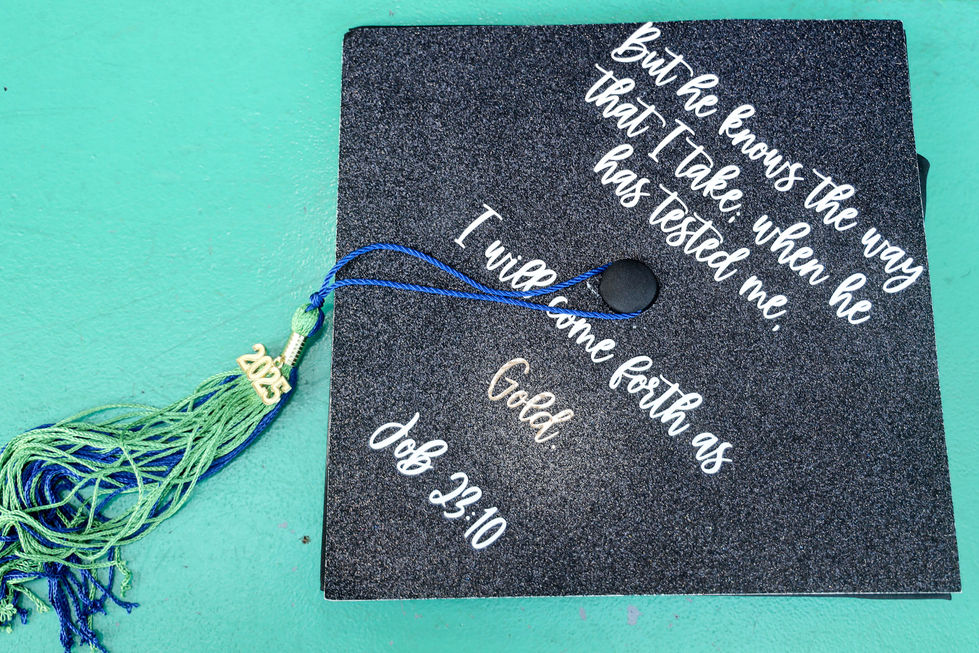 But he knows the way
that I take; when he
has tested me,
I will come forth as
Gold.
Job 23:10
2025